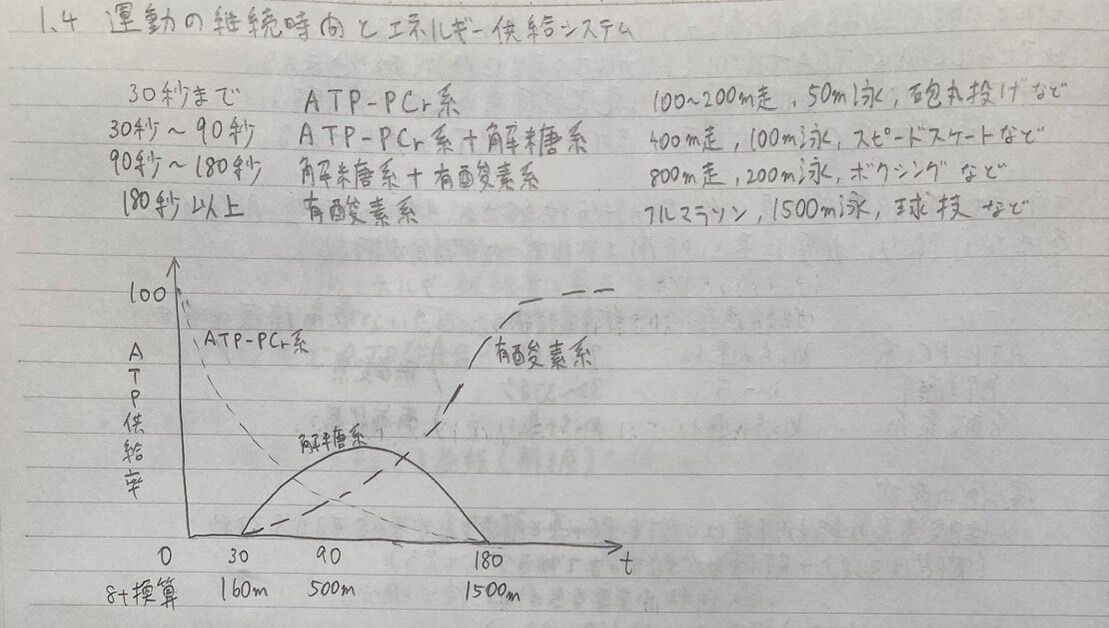 1.4 運動の継続時間とエネルギー供給システム
30秒まで ATP-PCr系 100~200m走, 50m泳, 砲丸投げなど
30秒~90秒 ATP-PCr系+解糖系 400m走, 100m泳, スピードスケートなど
90秒~180秒 解糖系+有酸素系 800m走, 200m泳, ボクシングなど
180秒以上 有酸素系 フルマラソン, 1500m泳, 球技など
100
ATP-PCr系
有酸素系
ATP供給率
解糖系
0 30 90 180 t
8+換算 160m 500m 1500m